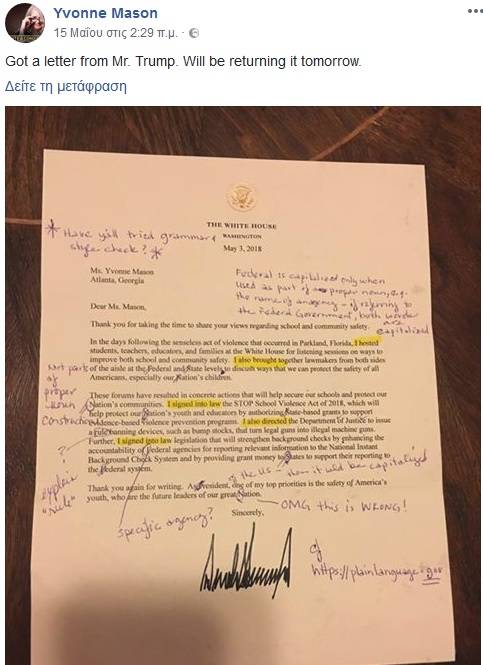 Yvonne Mason
15 Μαΐου στις 2:29 π.μ.
Got a letter from Mr. Trump. Will be returning it tomorrow.
Δείτε τη μετάφραση
THE WHITE HOUSE
WASHINGTON
May 3, 2018
* Have y'all tried grammar &
style check? *
Ms. Yvonne Mason
Atlanta, Georgia
Federal is capitalized only when
used as part of a proper noun, e.g.
the name of an agency - if referring to
the Federal Government, both words
are
capitalized
Dear Ms. Mason,
Thank you for taking the time to share your views regarding school and community safety.
In the days following the senseless act of violence that occurred in Parkland, Florida, I hosted
students, teachers, educators, and families at the White House for listening sessions on ways to
improve both school and community safety. I also brought together lawmakers from both sides
of the aisle at the Federal and State levels to discuss ways that we can protect the safety of all
Americans, especially our Nation's children.
Not part
of
proper
noun
construction
These forums have resulted in concrete actions that will help secure our schools and protect our
Nation's communities. I signed into law the STOP School Violence Act of 2018, which will
help protect our Nation's youth and educators by authorizing State-based grants to support
evidence-based violence prevention programs. I also directed the Department of Justice to issue
a rule banning devices, such as bump stocks, that turn legal guns into illegal machine guns.
Further, I signed into law legislation that will strengthen background checks by enhancing the
accountability of Federal agencies for reporting relevant information to the National Instant
Background Check System and by providing grant money to States to support their reporting to
the Federal system.
?
explain
"rule"
of the US - then it would be capitalized
Thank you again for writing. As President, one of my top priorities is the safety of America's
youth, who are the future leaders of our great Nation.
OMG this is WRONG!
specific agency?
Sincerely,
https://plainlanguage.gov